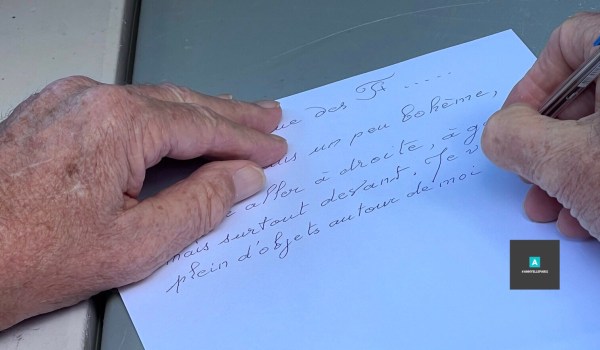 des Tr .....
un peu bohème,
aller à droite, à
mais surtout devant. Je
plein d'objets autour de moi